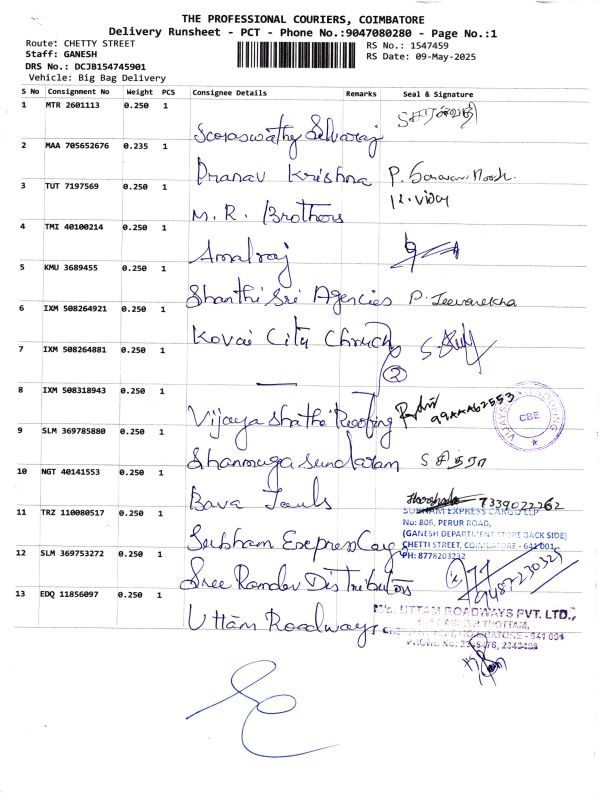 THE PROFESSIONAL COURIERS, COIMBATORE
Delivery Runsheet - PCT - Phone No.:9047080280 - Page No.:1
Route: CHETTY STREET
RS No.: 1547459
Staff: GANESH
RS Date: 09-May-2025
DRS No.: DCJB154745901
Vehicle: Big Bag Delivery
S No Consignment No Weight PCS Consignee Details Remarks Seal & Signature
1 MTR 2601113 0.250 1
2 MAA 705652676 0.235 1
Pranav Krishna
3 TUT 7197569 0.250 1
K. Vijay
M. R. Brothers
4 TMI 40100214 0.250 1
Amalraj
5 KMU 3689455 0.250 1
Shanthi Sri Agencies P. Jeevarekha
6 IXM 508264921 0.250 1
Kovai City Church
7 IXM 508264881 0.250 1
2
8 IXM 508318943 0.250 1
Vijaya Shathi Roofing
CBE
9 SLM 369785880 0.250 1
Shanmuga Sundaram சித்ரா
10 NGT 40141553 0.250 1
Bava Tools 7339022262
11 TRZ 110080517 0.250 1
SUBHAM EXPRESS CARGO LLP
No: 806, PERUR ROAD,
(GANESH DEPARTMENT STORE BACK SIDE)
Subham Express Cargo CHETTI STREET, COIMBATORE - 641 001.
12 SLM 369753272 0.250 1
PH: 8778203232
Sree Ramdev Distributors
13 EDQ 11856097 0.250 1
M/s. UTTAM ROADWAYS PVT. LTD.,
Uttam Roadways